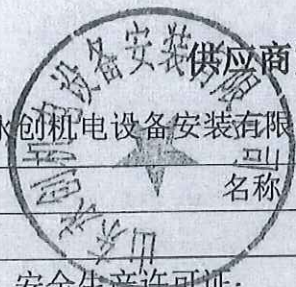 供应商
永创机电设备安装有限
名称
安全生产许可证:
山东永创机电设备安装有限公司